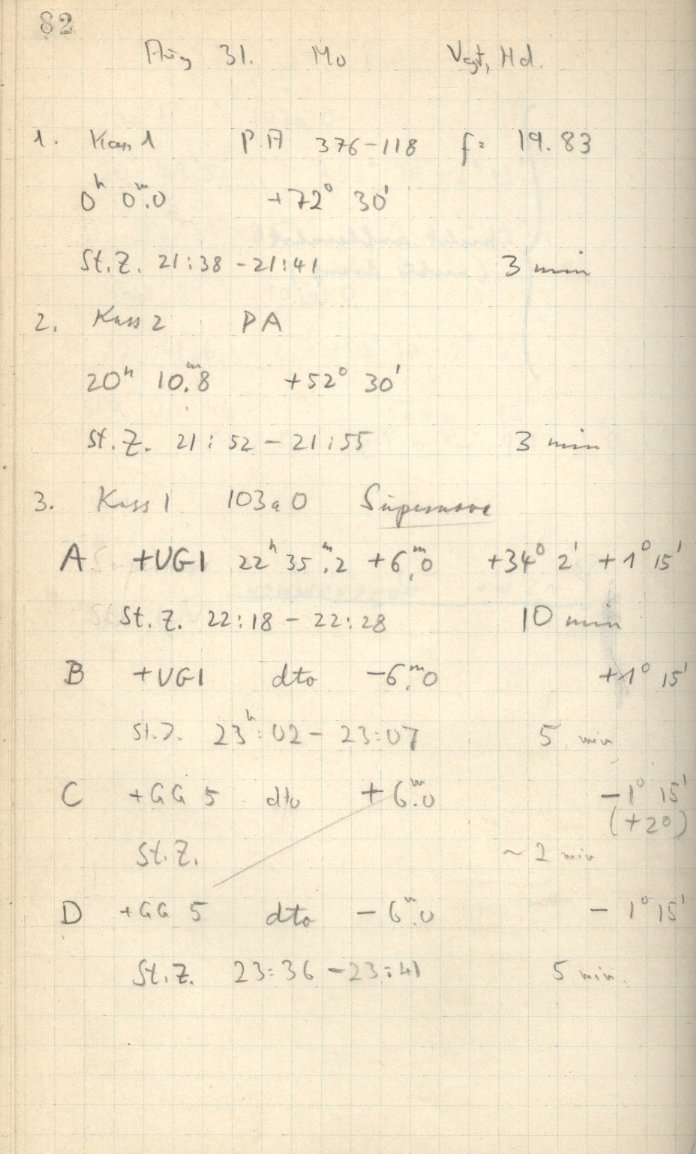 82
Aug 31. Mo Vgt, Hd.
1. Kass 1 P.A 376-118 f= 19.83
0ʰ 0ᵐ.0 +72° 30'
St.Z. 21:38 - 21:41 3 min
2. Kass 2 PA
20ʰ 10ᵐ.8 +52° 30'
St.Z. 21:52 - 21:55 3 min
3. Kass 1 103aO Supernova
A +UG1 22ʰ 35ᵐ.2 +6ᵐ.0 +34° 2' +1° 15'
St.Z. 22:18 - 22:28 10 min
B +UG1 dto -6ᵐ.0 +1° 15'
St.Z. 23ʰ:02 - 23:07 5 min
C +GG 5 dto +6ᵐ.0 -1° 15'
(+20)
St.Z. ~2 min
D +GG 5 dto -6ᵐ.0 -1° 15'
St.Z. 23:36 - 23:41 5 min.